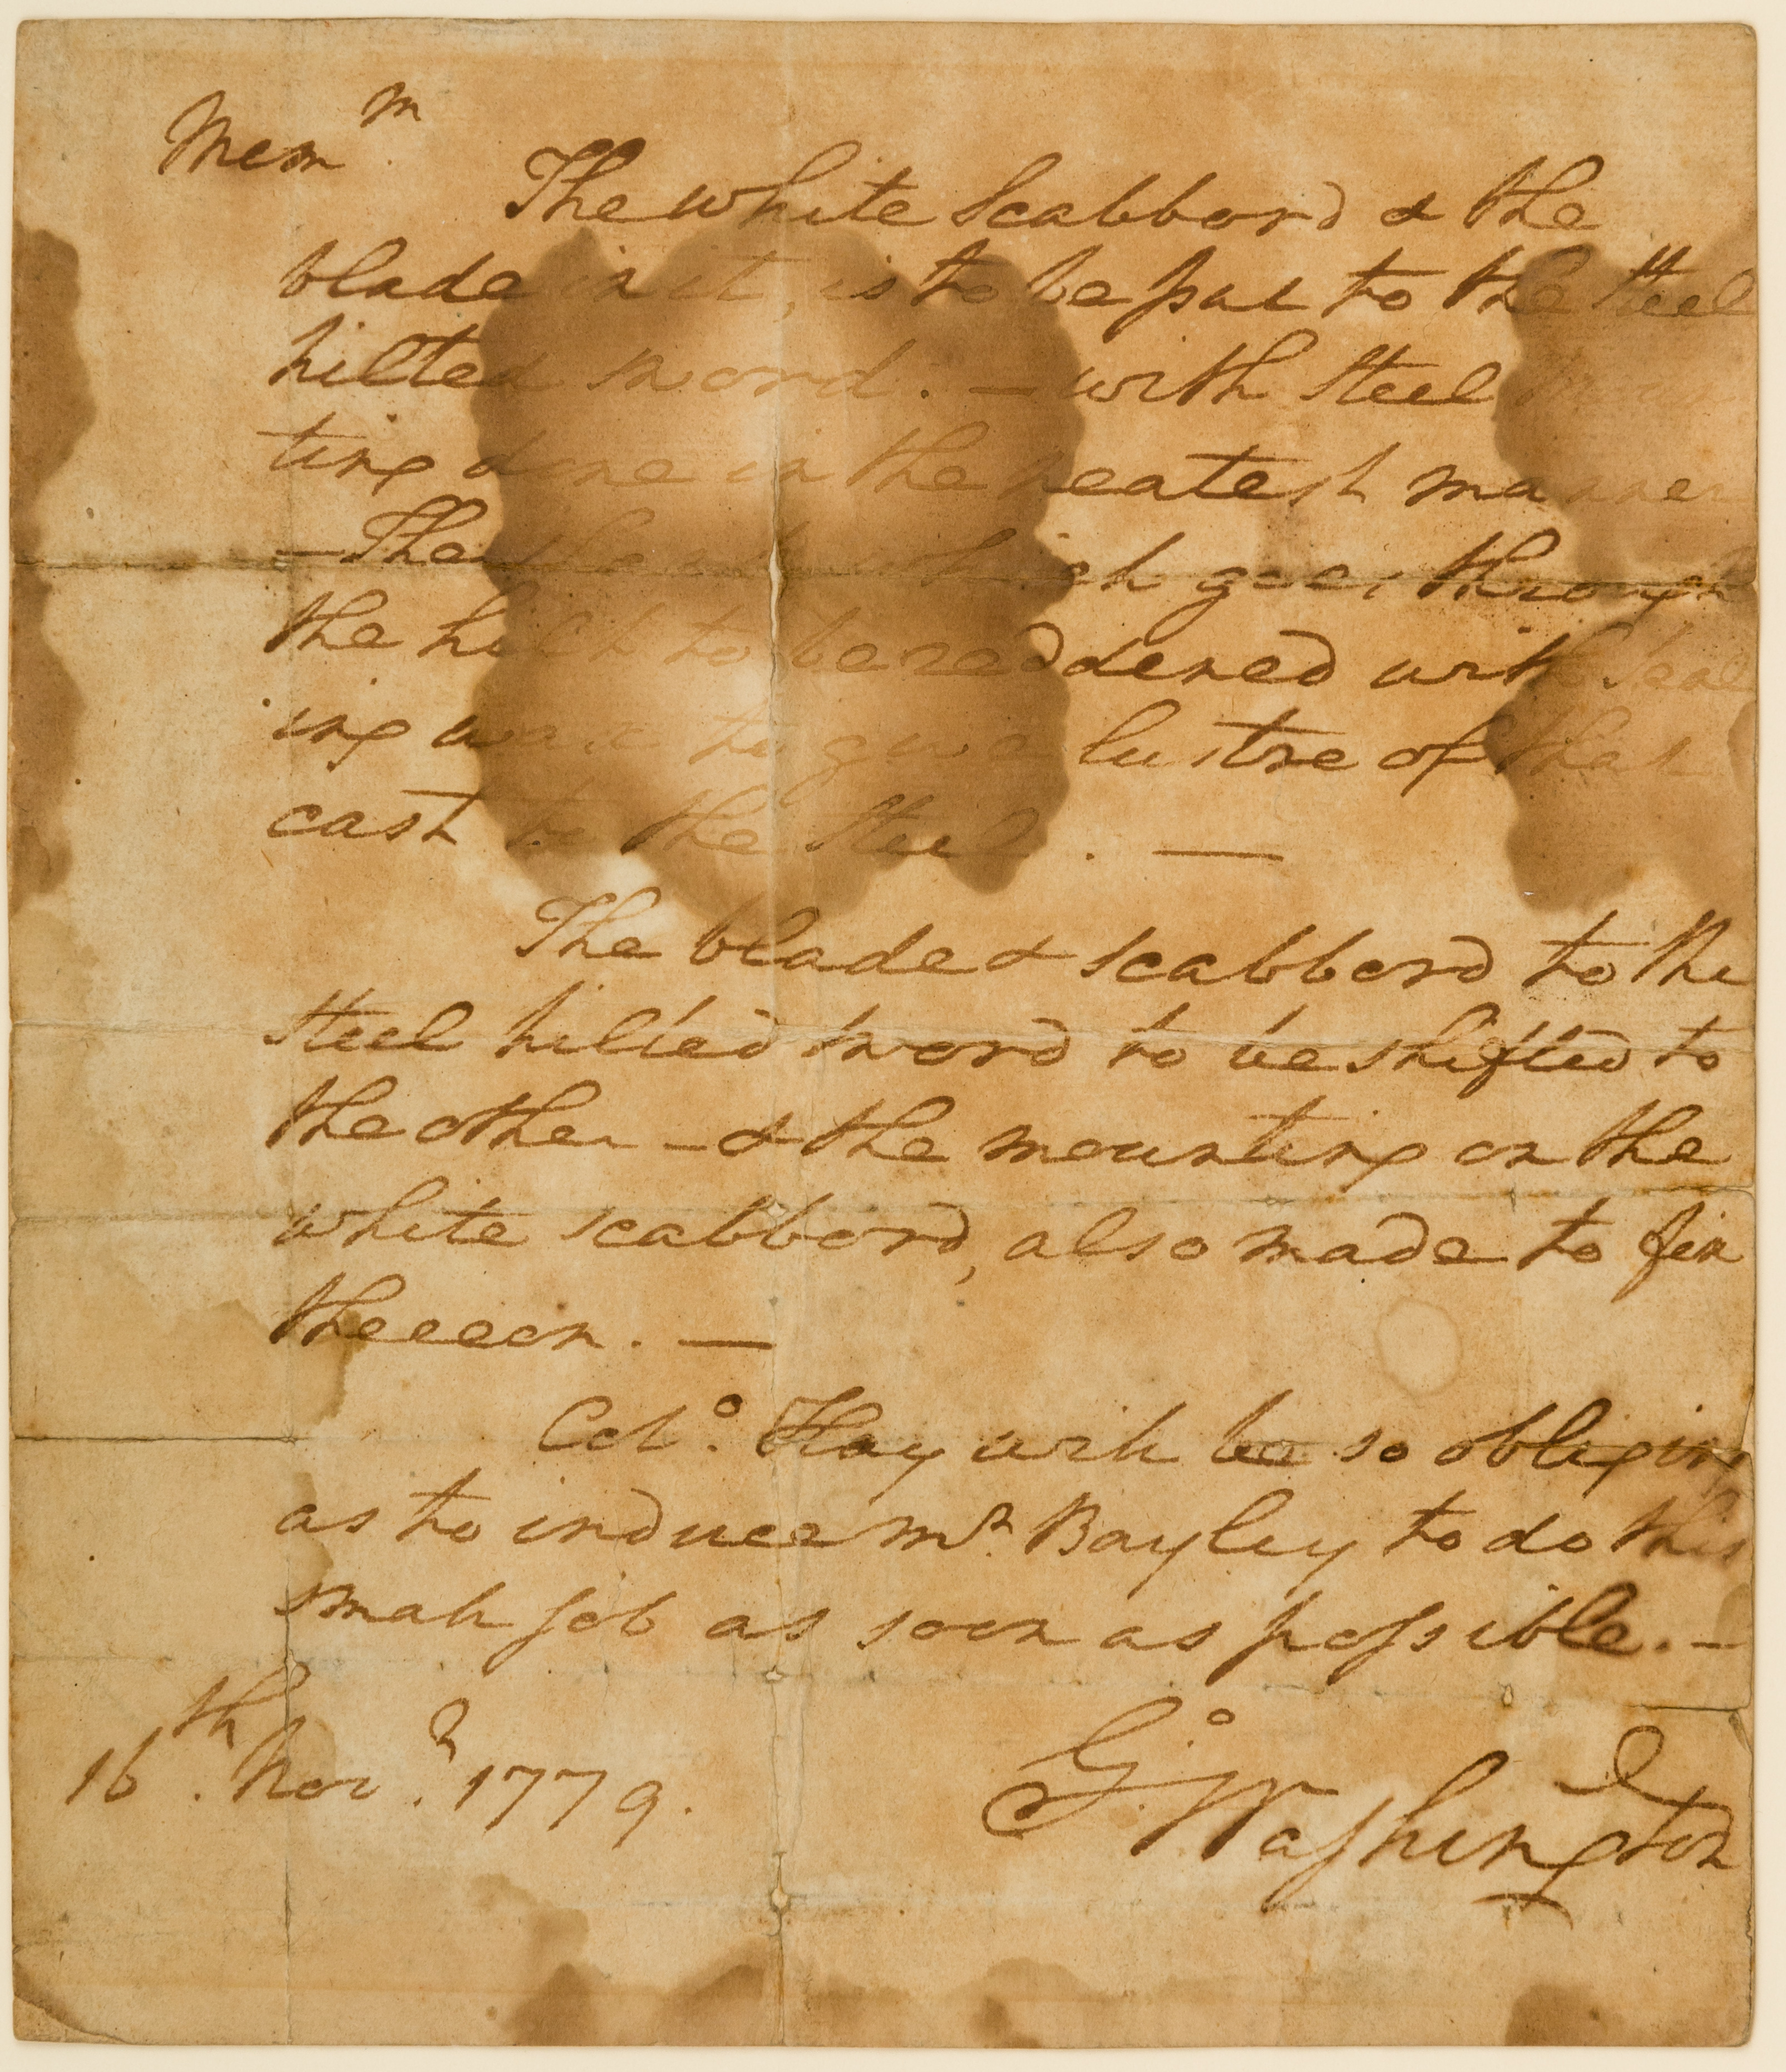 Mem^m.
The white Scabbord & the
blade in it, is to be put to the steel
hilted sword. — with steel moun
ting done in the neatest manner
— The which goes through
the hilt to be reddened with Seal
ing wax to give lustre of that
cast to the steel. —
The blade & scabbord to the
steel hilted sword to be shifted to
the other — & the mounting on the
white scabbord, also made to fix
thereon. —
Col^o. Hay will be so obliging
as to induce M^r. Bayley to do this
small job as soon as possible. —
16^th. Nov^r. 1779.
G^o. Washington